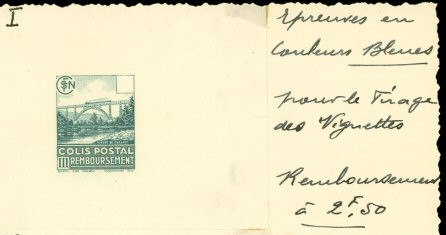 I
Epreuves en
Couleurs Bleues
pour le Tirage
des Vignettes
Remboursement
à 2F,50
SNCF
COLIS POSTAL
III REMBOURSEMENT